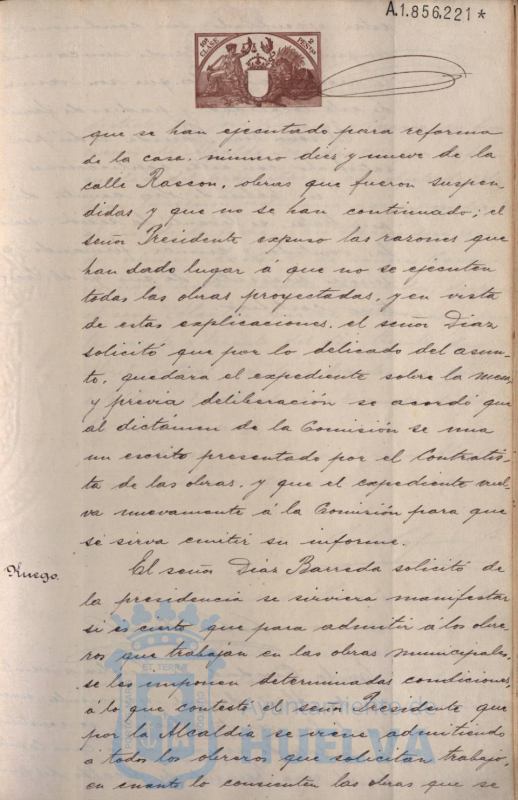 A.1.856.221*
10ª CLASE 2 PESTAS
que se han ejecutado para reforma
de la casa número diez y nueve de la
calle Rascon, obras que fueron suspen-
didas y que no se han continuado; el
señor Presidente expuso las razones que
han dado lugar á que no se ejecuten
todas las obras proyectadas, y en vista
de estas explicaciones, el señor Diaz
solicitó que por lo delicado del asun-
to, quedara el expediente sobre la mesa,
y prévia deliberación se acordó que
al dictámen de la Comisión se una
un escrito presentado por el Contratis-
ta de las obras, y que el expediente vuel-
va nuevamente á la Comisión para que
se sirva emitir su informe.
Ruego. El señor Diaz Barreda solicitó de
la presidencia se sirviera manifestar
si es cierto que para admitir á los obre-
ros que trabajan en las obras municipales,
se les imponen determinadas condiciones,
á lo que contestó el señor Presidente que
por la Alcaldia se viene admitiendo
a todos los obreros que solicitan trabajo,
en cuanto lo consienten las obras que se
Ayuntamiento de
HUELVA